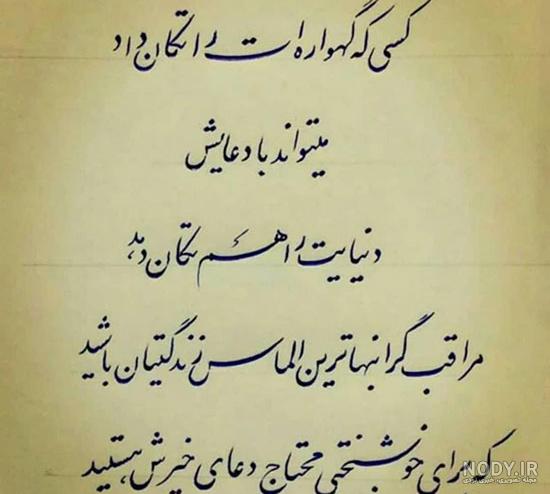 کسی که گهواره ات را تکان داد
میتواند با دعایش
دنیایت را هم تکان دهد
مراقب گرانبهاترین الماس زندگیتان باشید
که برای خوشبختی محتاج دعای خیرش هستید
NODY.IR
مجله تصویری، خبری نودی